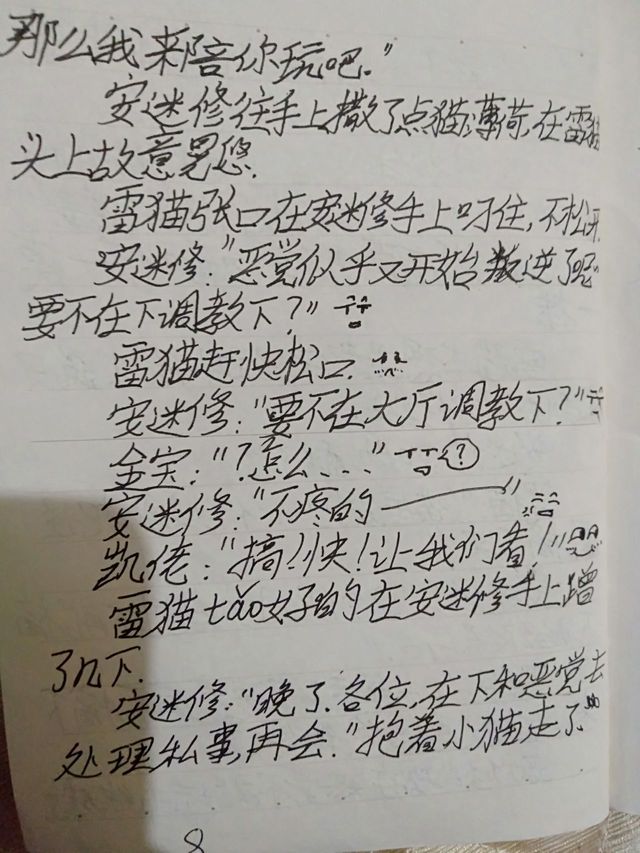 那么我来陪你玩吧."
安迷修往手上撒了点猫薄荷,在雷猫
头上故意晃悠.
雷猫张口在安迷修手上叼住,不松开
安迷修:"恶党似乎又开始叛逆了呢
要不在下调教下?"
雷猫赶快松口.
安迷修:"要不在大厅调教下?"
金宝:"?怎么..." ?
安迷修:"不疼的——"
凯佬:"搞!快!让我们看!"
雷猫tǎo好的在安迷修手上蹭
了几下.
安迷修:"晚了.各位,在下和恶党去
处理私事,再会."抱着小猫走了
8